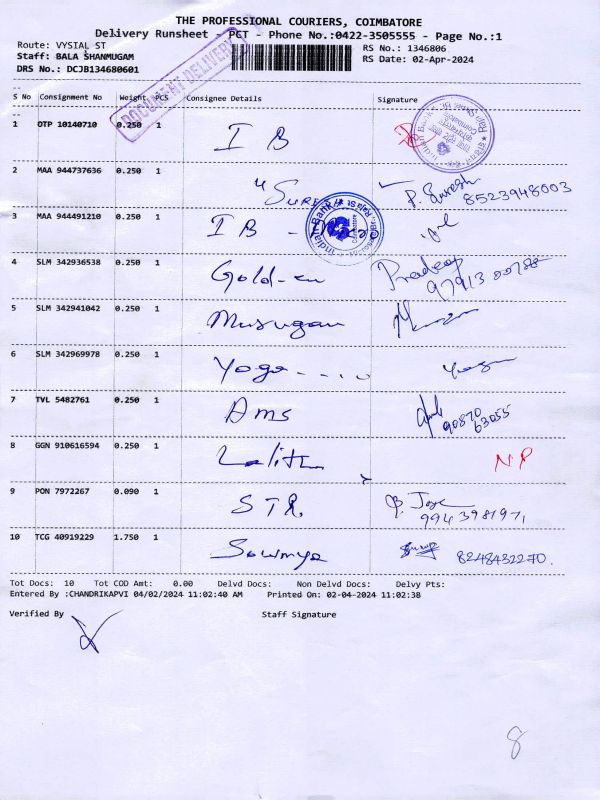 THE PROFESSIONAL COURIERS, COIMBATORE
Delivery Runsheet - PCT - Phone No.:0422-3505555 - Page No.:1
Route: VYSIAL ST RS No.: 1346806
Staff: BALA SHANMUGAM RS Date: 02-Apr-2024
DRS No.: DCJB134680601
DOCUMENT DELIVERY
S No Consignment No Weight PCS Consignee Details Signature
1 OTP 10140710 0.250 1 I B
Indian Bank
2 MAA 944737636 0.250 1 "Sure P. Suresh 8523948003
3 MAA 944491210 0.250 1 I B -
Indian Bank
Coimbatore
4 SLM 342936538 0.250 1 Gold-en Pradeep
5 SLM 342941042 0.250 1 Murugan
6 SLM 342969978 0.250 1 Yoga ....
7 TVL 5482761 0.250 1 Ams 90870
63055
8 GGN 910616594 0.250 1 Lalith NP
9 PON 7972267 0.090 1 STR.
994 3981971
10 TCG 40919229 1.750 1 Sowmya 8248432270.
Tot Docs: 10 Tot COD Amt: 0.00 Delvd Docs: Non Delvd Docs: Delvy Pts:
Entered By :CHANDRIKAPVI 04/02/2024 11:02:40 AM Printed On: 02-04-2024 11:02:38
Verified By Staff Signature
8